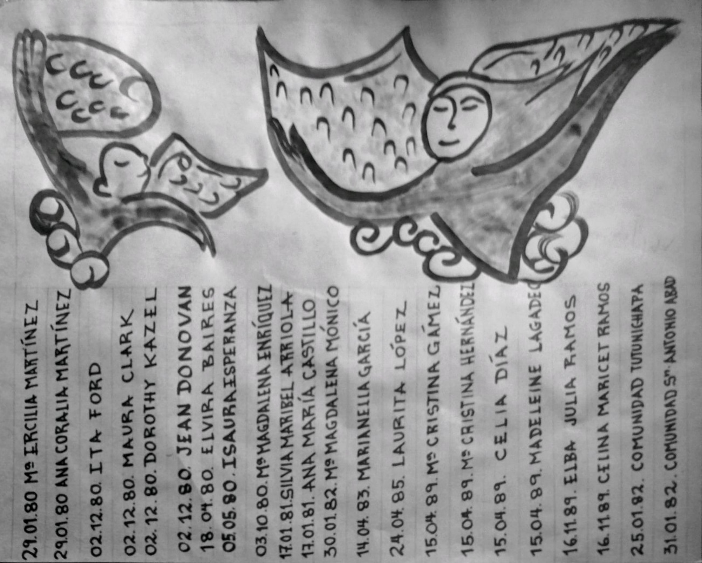 29.01.80 Mª ERCILIA MARTÍNEZ
29.01.80 ANA CORALIA MARTÍNEZ
02.12.80. ITA FORD
02.12.80. MAURA CLARK
02.12.80. DOROTHY KAZEL
02.12.80. JEAN DONOVAN
18.04.80. ELVIRA BAIRES
05.05.80. ISAURA ESPERANZA
03.10.80. Mª MAGDALENA ENRÍQUEZ
17.01.81. SILVIA MARIBEL ARRIOLA
17.01.81. ANA MARÍA CASTILLO
30.01.82. Mª MAGDALENA MÓNICO
14.04.83. MARIANELLA GARCÍA
24.04.85. LAURITA LÓPEZ
15.04.89. Mª CRISTINA GÁMEZ
15.04.89. Mª CRISTINA HERNÁNDEZ
15.04.89. CELIA DÍAZ
15.04.89. MADELEINE LAGADEC
16.11.89. ELBA JULIA RAMOS
16.11.89. CELINA MARICET RAMOS
25.01.82. COMUNIDAD TUTUNICHAPA
31.01.82. COMUNIDAD Sn. ANTONIO ABAD